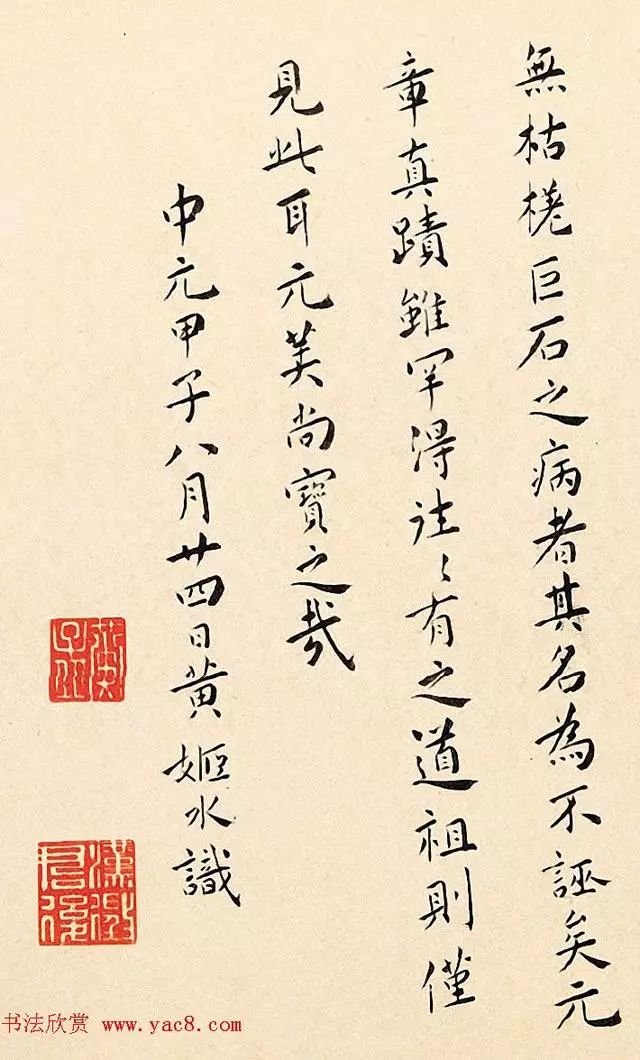 無枯槎巨石之病者其名為不誣矣元
章真蹟雖罕得往〻有之道祖則僅
見此耳元美尚寶之哉
中元甲子八月廿四日黄姬水識
漢徵君後
书法欣赏 www.yac8.com